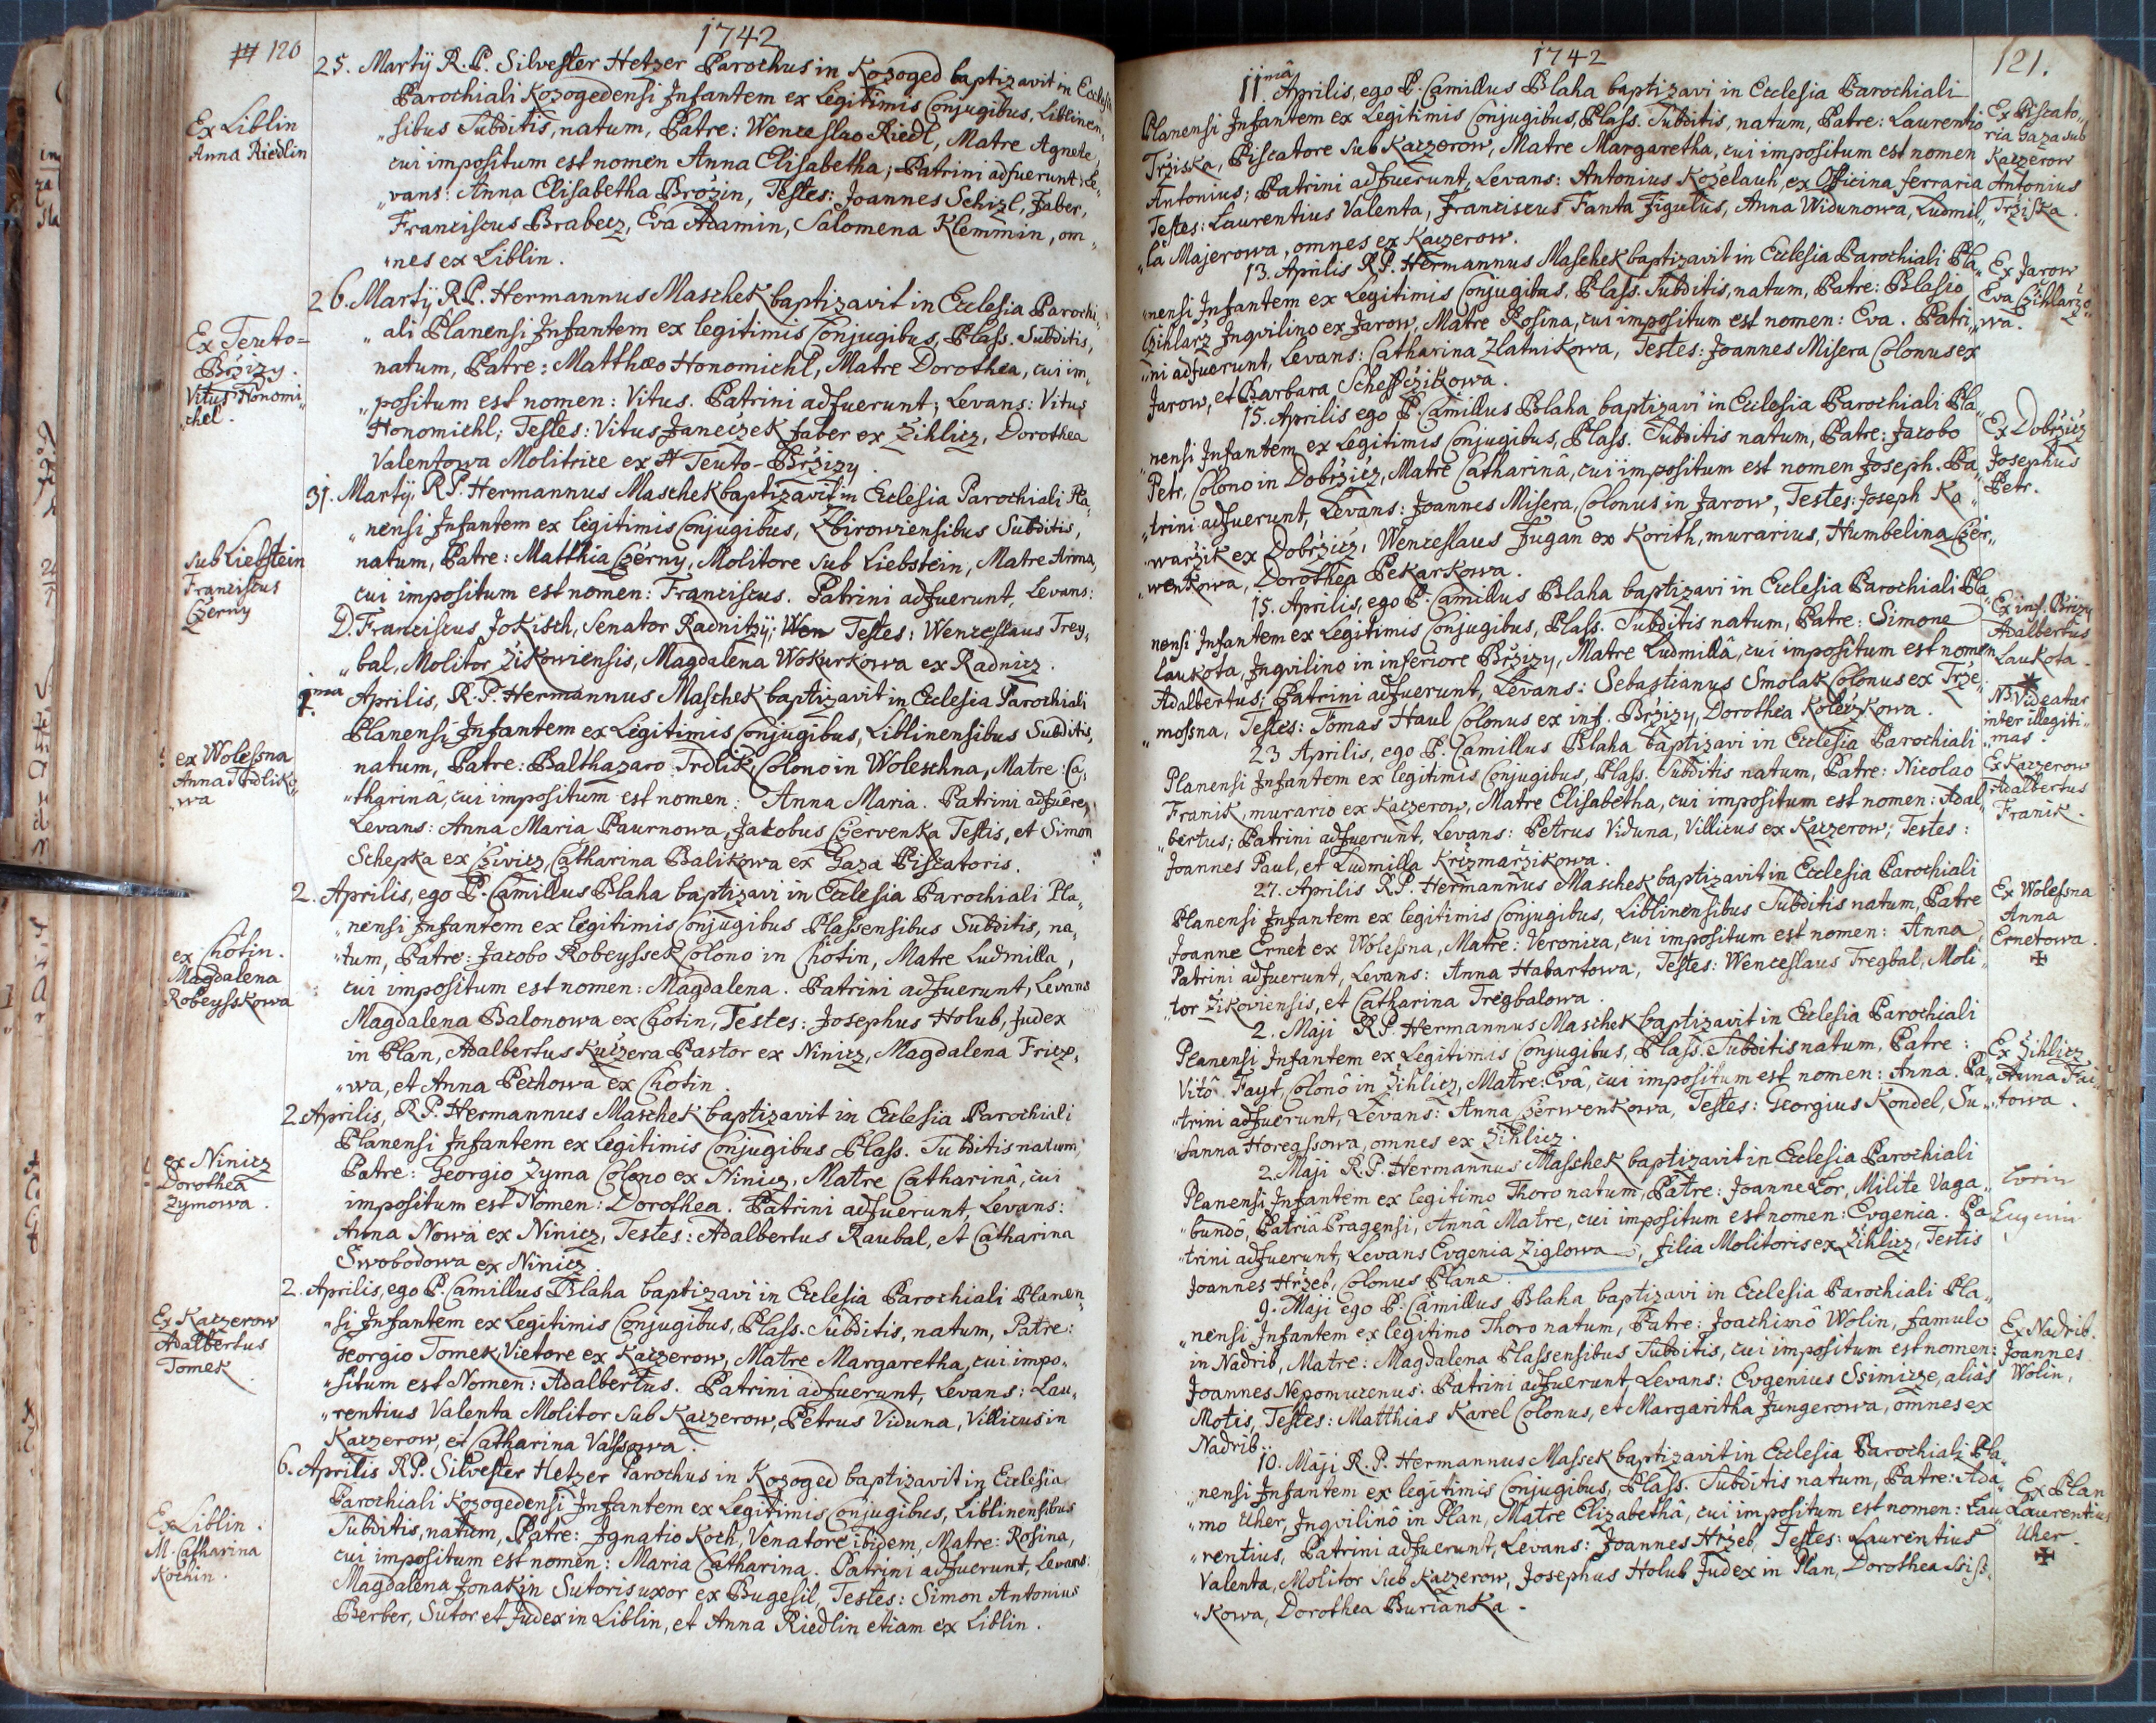 120
1742
Ex Liblin
Anna Riedlin
25. Martÿ R. P. Silvester Hetzer Parochus in Kozoged baptizavit in Ecclesia
Parochiali Kozogedensi Infantem ex Legitimis Conjugibus, Liblinen„
„sibus Subditis, natum, Patre: Wenceslao Riedl, Matre Agnete,
cui impositum est nomen Anna Elisabetha; Patrini adfuerunt: Le„
„vans: Anna Elisabetha Brožin, Testes: Joannes Schizl, Faber,
Franciscus Brabecz, Eva Adamin, Salomena Klemmin, om„
„nes ex Liblin.
Ex Teuto=
Bržizy.
Vitus Honomi„
„chel.
26. Martÿ R.P. Hermannus Maschek baptizavit in Ecclesia Parochi„
„ali Planensi Infantem ex legitimis Conjugibus, Plass. Subditis,
natum, Patre: Matthæo Honomichl, Matre Dorothea, cui im„
„positum est nomen: Vitus. Patrini adfuerunt; Levans: Vitus
Honomichl; Testes: Vitus Janeczek Faber ex Žihlicz, Dorothea
Valentowa Molitrice ex Teuto-Bržizy.
sub Liebstein
Franciscus
Czerny
31. Martÿ, R.P. Hermannus Maschek baptizavit in Ecclesia Parochiali Pla„
„nensi Infantem ex legitimis Conjugibus, Zbirowiensibus Subditis,
natum, Patre: Matthia Czerny, Molitore sub Liebstein, Matre Anna,
cui impositum est nomen: Franciscus. Patrini adfuerunt, Levans:
D. Franciscus Jokisch, Senator Radnitzÿ; Wen Testes: Wenceslaus Trey„
„bal, Molitor Žikowiensis, Magdalena Wokurkowa ex Radnicz.
ex Wolessna
Anna Trdliko„
„wa
1.ma Aprilis, R.P. Hermannus Maschek baptizavit in Ecclesia Parochiali
Planensi Infantem ex Legitimis Conjugibus, Liblinensibus Subditis,
natum, Patre: Balthazaro Trdlik, Colono in Woleschna, Matre: Ca„
„tharinâ, cui impositum est nomen: Anna Maria. Patrini adfuêre,
Levans: Anna Maria Paurnowa, Jakobus Czervenka Testis, et Simon
Schepka ex Cziwicz, Catharina Balikowa ex Gaza Piscatoris.
ex Chotin.
Magdalena
Robeysskowa
2. Aprilis, ego P. Camillus Blaha baptizavi in Ecclesia Parochiali Pla„
„nensi Infantem ex legitimis Conjugibus Plassensibus Subditis, na„
„tum, Patre: Jacobo Robeyssek Colono in Chotin, Matre Ludmilla,
cui impositum est nomen: Magdalena. Patrini adfuerunt, Levans
Magdalena Balonowa ex Chotin, Testes: Josephus Holub, Judex
in Plan, Adalbertus Kuczera Pastor ex Ninicz, Magdalena Friczo„
„wa, et Anna Pechowa ex Chotin.
ex Ninicz
Dorothea
Zymowa.
2. Aprilis, R.P. Hermannus Maschek baptizavit in Ecclesia Parochiali
Planensi Infantem ex Legitimis Conjugibus Plass. Subditis natum,
Patre: Georgio Zyma Colono ex Ninicz, Matre Catharinâ, cui
impositum est Nomen: Dorothea. Patrini adfuerunt, Levans:
Anna Nowa ex Ninicz, Testes: Adalbertus Raubal, et Catharina
Swobodowa ex Ninicz.
Ex Kaczerow
Adalbertus
Tomek.
2. Aprilis, ego P. Camillus Blaha baptizavi in Ecclesia Parochiali Planen„
„si Infantem ex Legitimis Conjugibus, Plass. Subditis, natum, Patre:
Georgio Tomek, Vietore ex Kaczerow, Matre Margaretha, cui impo„
„situm est Nomen: Adalbertus. Patrini adfuerunt, Levans: Lau„
„rentius Valenta Molitor sub Kaczerow, Petrus Viduna, Villicus in
Kaczerow, et Catharina Valssowa.
Ex Liblin.
M. Catharina
Kochin.
6. Aprilis R.P. Silvester Hetzer Parochus in Kozoged baptizavit in Ecclesia
Parochiali Kozogedensi Infantem ex Legitimis Conjugibus, Liblinensibus
Subditis, natum, Patre: Ignatio Koch, Venatore ibidem, Matre: Rosina,
cui impositum est nomen: Maria Catharina. Patrini adfuerunt, Levans:
Magdalena Jonakin Sutoris uxor ex Bugesil, Testes: Simon Antonius
Berber, Sutor et Judex in Liblin, et Anna Riedlin etiam ex Liblin.
1742
121.
11mâ Aprilis, ego P. Camillus Blaha baptizavi in Ecclesia Parochiali
Planensi Infantem ex Legitimis Conjugibus, Plass. Subditis, natum, Patre: Laurentio
Tržiska, Piscatore sub Kaczerow, Matre Margaretha, cui impositum est nomen
Antonius; Patrini adfuerunt, Levans: Antonius Kozelauh, ex Officina ferraria
Testes: Laurentius Valenta, Franciscus Fanta Figulus, Anna Widunowa, Ludmil„
„la Majerowa, omnes ex Kaczerow.
Ex Piscato„
ria Gaza sub
Kaczerow
Antonius
Tržiska.
13. Aprilis R.P. Hermannus Maschek baptizavit in Ecclesia Parochiali Pla„
„nensi Infantem ex Legitimis Conjugibus, Plass. Subditis, natum, Patre: Blasio
Czihlarz Inqvilino ex Jarow, Matre Rosina, cui impositum est nomen: Eva. Patri„
„ni adfuerunt, Levans: Catharina Zlatnikowa, Testes: Joannes Misera Colonus ex
Jarow, et Barbara Scheffczikowa.
Ex Jarow
Eva Czihlaržo„
„wa.
15. Aprilis ego P. Camillus Blaha baptizavi in Ecclesia Parochiali Pla„
„nensi Infantem ex Legitimis Conjugibus, Plass. Subditis natum, Patre: Jacobo
Petr, Colono in Dobržicz, Matre Catharinâ, cui impositum est nomen Joseph. Pa„
„trini adfuerunt, Levans: Joannes Misera, Colonus in Jarow, Testes: Joseph Ko„
„waržik ex Dobržicz, Wenceslaus Fugan ex Korith, murarius, Humbelina Czer„
„wenkowa, Dorothea Pekarkowa.
Ex Dobržicz
Josephus
Petr.
15. Aprilis, ego P. Camillus Blaha baptizavi in Ecclesia Parochiali Pla„
nensi Infantem ex Legitimis Conjugibus, Plass. Subditis natum, Patre: Simone
Laukota, Inqvilino in inferiore Bržizy, Matre Ludmillâ, cui impositum est nomen
Adalbertus; Patrini adfuerunt, Levans: Sebastianus Smolak Colonus ex Trže„
„mossna, Testes: Tomas Haul Colonus ex inf. Bržizy, Dorothea Koležkowa.
Ex inf. Brizy
Adalbertus
Laukota.
NB Videatur
inter illegiti„
„mas.
23 Aprilis, ego P. Camillus Blaha baptizavi in Ecclesia Parochiali
Planensi Infantem ex legitimis Conjugibus, Plass. Subditis natum, Patre: Nicolao
Franik, murario ex Kaczerow, Matre Elisabetha, cui impositum est nomen: Adal„
„bertus; Patrini adfuerunt, Levans: Petrus Viduna, Villicus ex Kaczerow; Testes:
Joannes Paul, et Ludmilla Krizmaržikowa.
Ex Kaczerow
Adalbertus
Franik.
27. Aprilis R.P. Hermannus Maschek baptizavit in Ecclesia Parochiali
Planensi Infantem ex legitimis Conjugibus, Liblinensibus Subditis natum, Patre
Joanne Ernet ex Wolessna, Matre: Veronica, cui impositum est nomen: Anna,
Patrini adfuerunt, Levans: Anna Habartowa, Testes: Wenceslaus Tregbal, Moli„
„tor Žikoviensis, et Catharina Tregbalowa.
Ex Wolessna
Anna
Ernetowa.
2. Maji R.P. Hermannus Maschek baptizavit in Ecclesia Parochiali
Planensi Infantem ex Legitimis Conjugibus, Plass. Subditis natum, Patre:
Vitô Fayt, Colonô in Žihlicz, Matre: Evâ, cui impositum est nomen: Anna. Pa„
„trini adfuerunt, Levans: Anna Czerwenkowa, Testes: Georgius Kondel, Su„
„sanna Horegssowa, omnes ex Žihlicz.
Ex Žihlicz
Anna Fai„
„towa.
2. Maji R.P. Hermannus Masshek baptizavit in Ecclesia Parochiali
Planensi Infantem ex legitimo Thoro natum, Patre: Joanne Lor, Milite Vaga„
„bundô, Patriâ Pragensi, Annâ Matre, cui impositum est nomen: Evgenia. Pa„
„trini adfuerunt, Levans Evgenia Ziglowa, filia Molitoris ex Žihlicz, Testis
Joannes Hržeb, Colonus Planæ.
9. Maji ego P. Camillus Blaha baptizavi in Ecclesia Parochiali Pla„
„nensi Infantem ex legitimo Thoro natum, Patre: Joachimô Wolin, famulo
in Nadrib, Matre: Magdalena Plassensibus Subditis, cui impositum est nomen:
Joannes Nepomucenus: Patrini adfuerunt, Levans: Evgenius Ssimicze, aliàs
Motis, Testes: Matthias Karel Colonus, et Margaritha Jungerowa, omnes ex
Nadrib.
Ex Nadrib.
Joannes
Wolin,
10. Maji R.P. Hermannus Massek baptizavit in Ecclesia Parochiali Pla„
„nensi Infantem ex legitimis Conjugibus, Plass. Subditis natum, Patre: Ada„
„mo Uher, Inqvilinô in Plan, Matre Elizabethâ, cui impositum est nomen: Lau„
„rentius, Patrini adfuerunt, Levans: Joannes Hržeb, Testes: Laurentius
Valenta, Molitor sub Kaczerow, Josephus Holub Judex in Plan, Dorothea Ssiss„
„kowa, Dorothea Burianka.
Ex Plan
Laurentius
Uher.